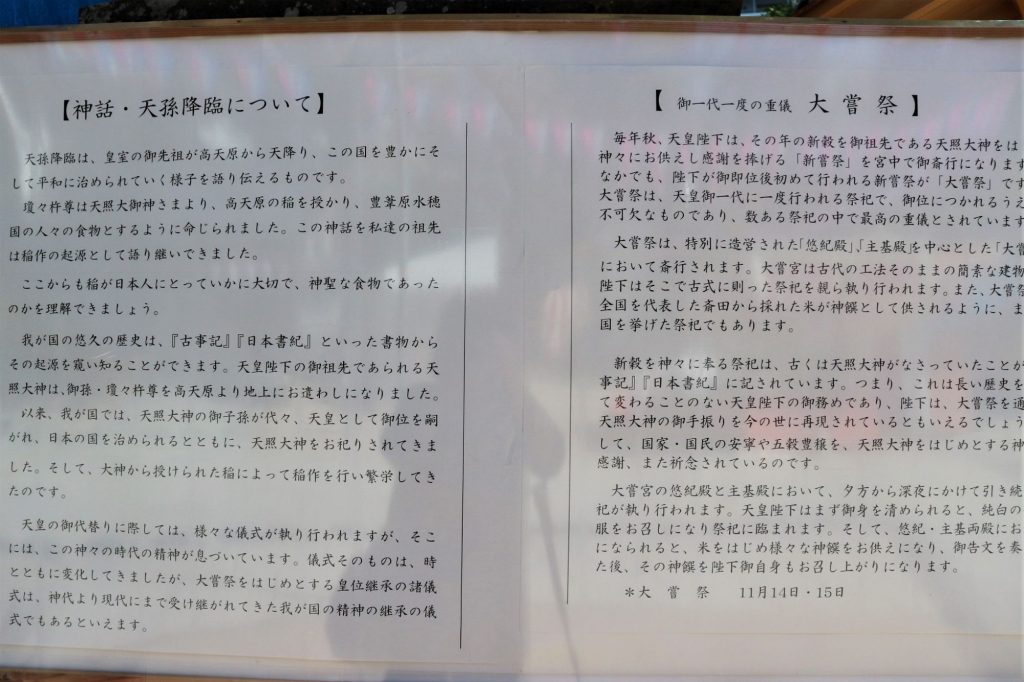 【神話・天孫降臨について】
天孫降臨は、皇室の御先祖が高天原から天降り、この国を豊かにそ
して平和に治められていく様子を語り伝えるものです。
瓊々杵尊は天照大御神さまより、高天原の稲を授かり、豊葦原水穂
国の人々の食物とするように命じられました。この神話を私達の祖先
は稲作の起源として語り継いできました。
ここからも稲が日本人にとっていかに大切で、神聖な食物であった
のかを理解できましょう。
我が国の悠久の歴史は、『古事記』『日本書紀』といった書物から
その起源を窺い知ることができます。天皇陛下の御祖先であられる天
照大神は、御孫・瓊々杵尊を高天原より地上にお遣わしになりました。
以来、我が国では、天照大神の御子孫が代々、天皇として御位を嗣
がれ、日本の国を治められるとともに、天照大神をお祀りされてきま
した。そして、大神から授けられた稲によって稲作を行い繁栄してき
たのです。
天皇の御代替りに際しては、様々な儀式が執り行われますが、そこ
には、この神々の時代の精神が息づいています。儀式そのものは、時
とともに変化してきましたが、大嘗祭をはじめとする皇位継承の諸儀
式は、神代より現代にまで受け継がれてきた我が国の精神の継承の儀
式でもあるといえます。
【 御一代一度の重儀 大嘗祭 】
毎年秋、天皇陛下は、その年の新穀を御祖先である天照大神をは
神々にお供えし感謝を捧げる「新嘗祭」を宮中で御斎行になります
なかでも、陛下が御即位後初めて行われる新嘗祭が「大嘗祭」です
大嘗祭は、天皇御一代に一度行われる祭祀で、御位につかれるうえ
不可欠なものであり、数ある祭祀の中で最高の重儀とされています
大嘗祭は、特別に造営された「悠紀殿」、「主基殿」を中心とした「大嘗
において斎行されます。大嘗宮は古代の工法そのままの簡素な建物
陛下はそこで古式に則った祭祀を親ら執り行われます。また、大嘗祭
全国を代表した斎田から採れた米が神饌として供されるように、ま
国を挙げた祭祀でもあります。
新穀を神々に奉る祭祀は、古くは天照大神がなさっていたことが
事記』『日本書紀』に記されています。つまり、これは長い歴史を
て変わることのない天皇陛下の御務めであり、陛下は、大嘗祭を通
天照大神の御手振りを今の世に再現されているともいえるでしょう
して、国家・国民の安寧や五穀豊穣を、天照大神をはじめとする神
感謝、また祈念されているのです。
大嘗宮の悠紀殿と主基殿において、夕方から深夜にかけて引き続
祀が執り行われます。天皇陛下はまず御身を清められると、純白の
服をお召しになり祭祀に臨まれます。そして、悠紀・主基両殿にお
になられると、米をはじめ様々な神饌をお供えになり、御告文を奏
た後、その神饌を陛下御自身もお召し上がりになります。
＊大 嘗 祭 11月14日・15日